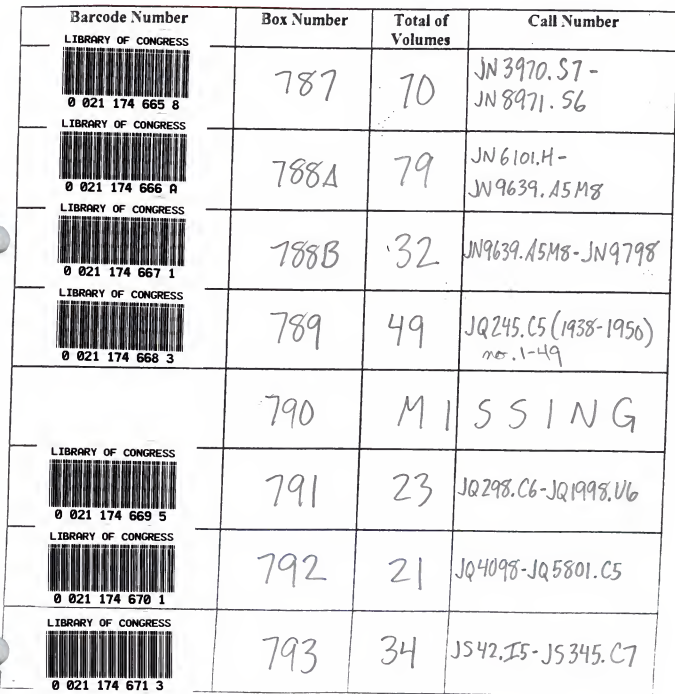 Barcode Number Box Number Total of Volumes Call Number
LIBRARY OF CONGRESS
0 021 174 665 8
787
70
JN 3970.S7-
JN 8971.S6
LIBRARY OF CONGRESS
0 021 174 666 A
788A
79
JN 6101.H-
JN 9639.A5M8
LIBRARY OF CONGRESS
0 021 174 667 1
788B
32
JN9639.A5M8-JN9798
LIBRARY OF CONGRESS
0 021 174 668 3
789
49
JQ245.C5 (1938-1950)
no. 1-49
790
MISSING
LIBRARY OF CONGRESS
0 021 174 669 5
791
23
JQ298.C6-JQ1998.U6
LIBRARY OF CONGRESS
0 021 174 670 1
792
21
JQ4098-JQ5801.C5
LIBRARY OF CONGRESS
0 021 174 671 3
793
34
JS42.I5-JS345.C7